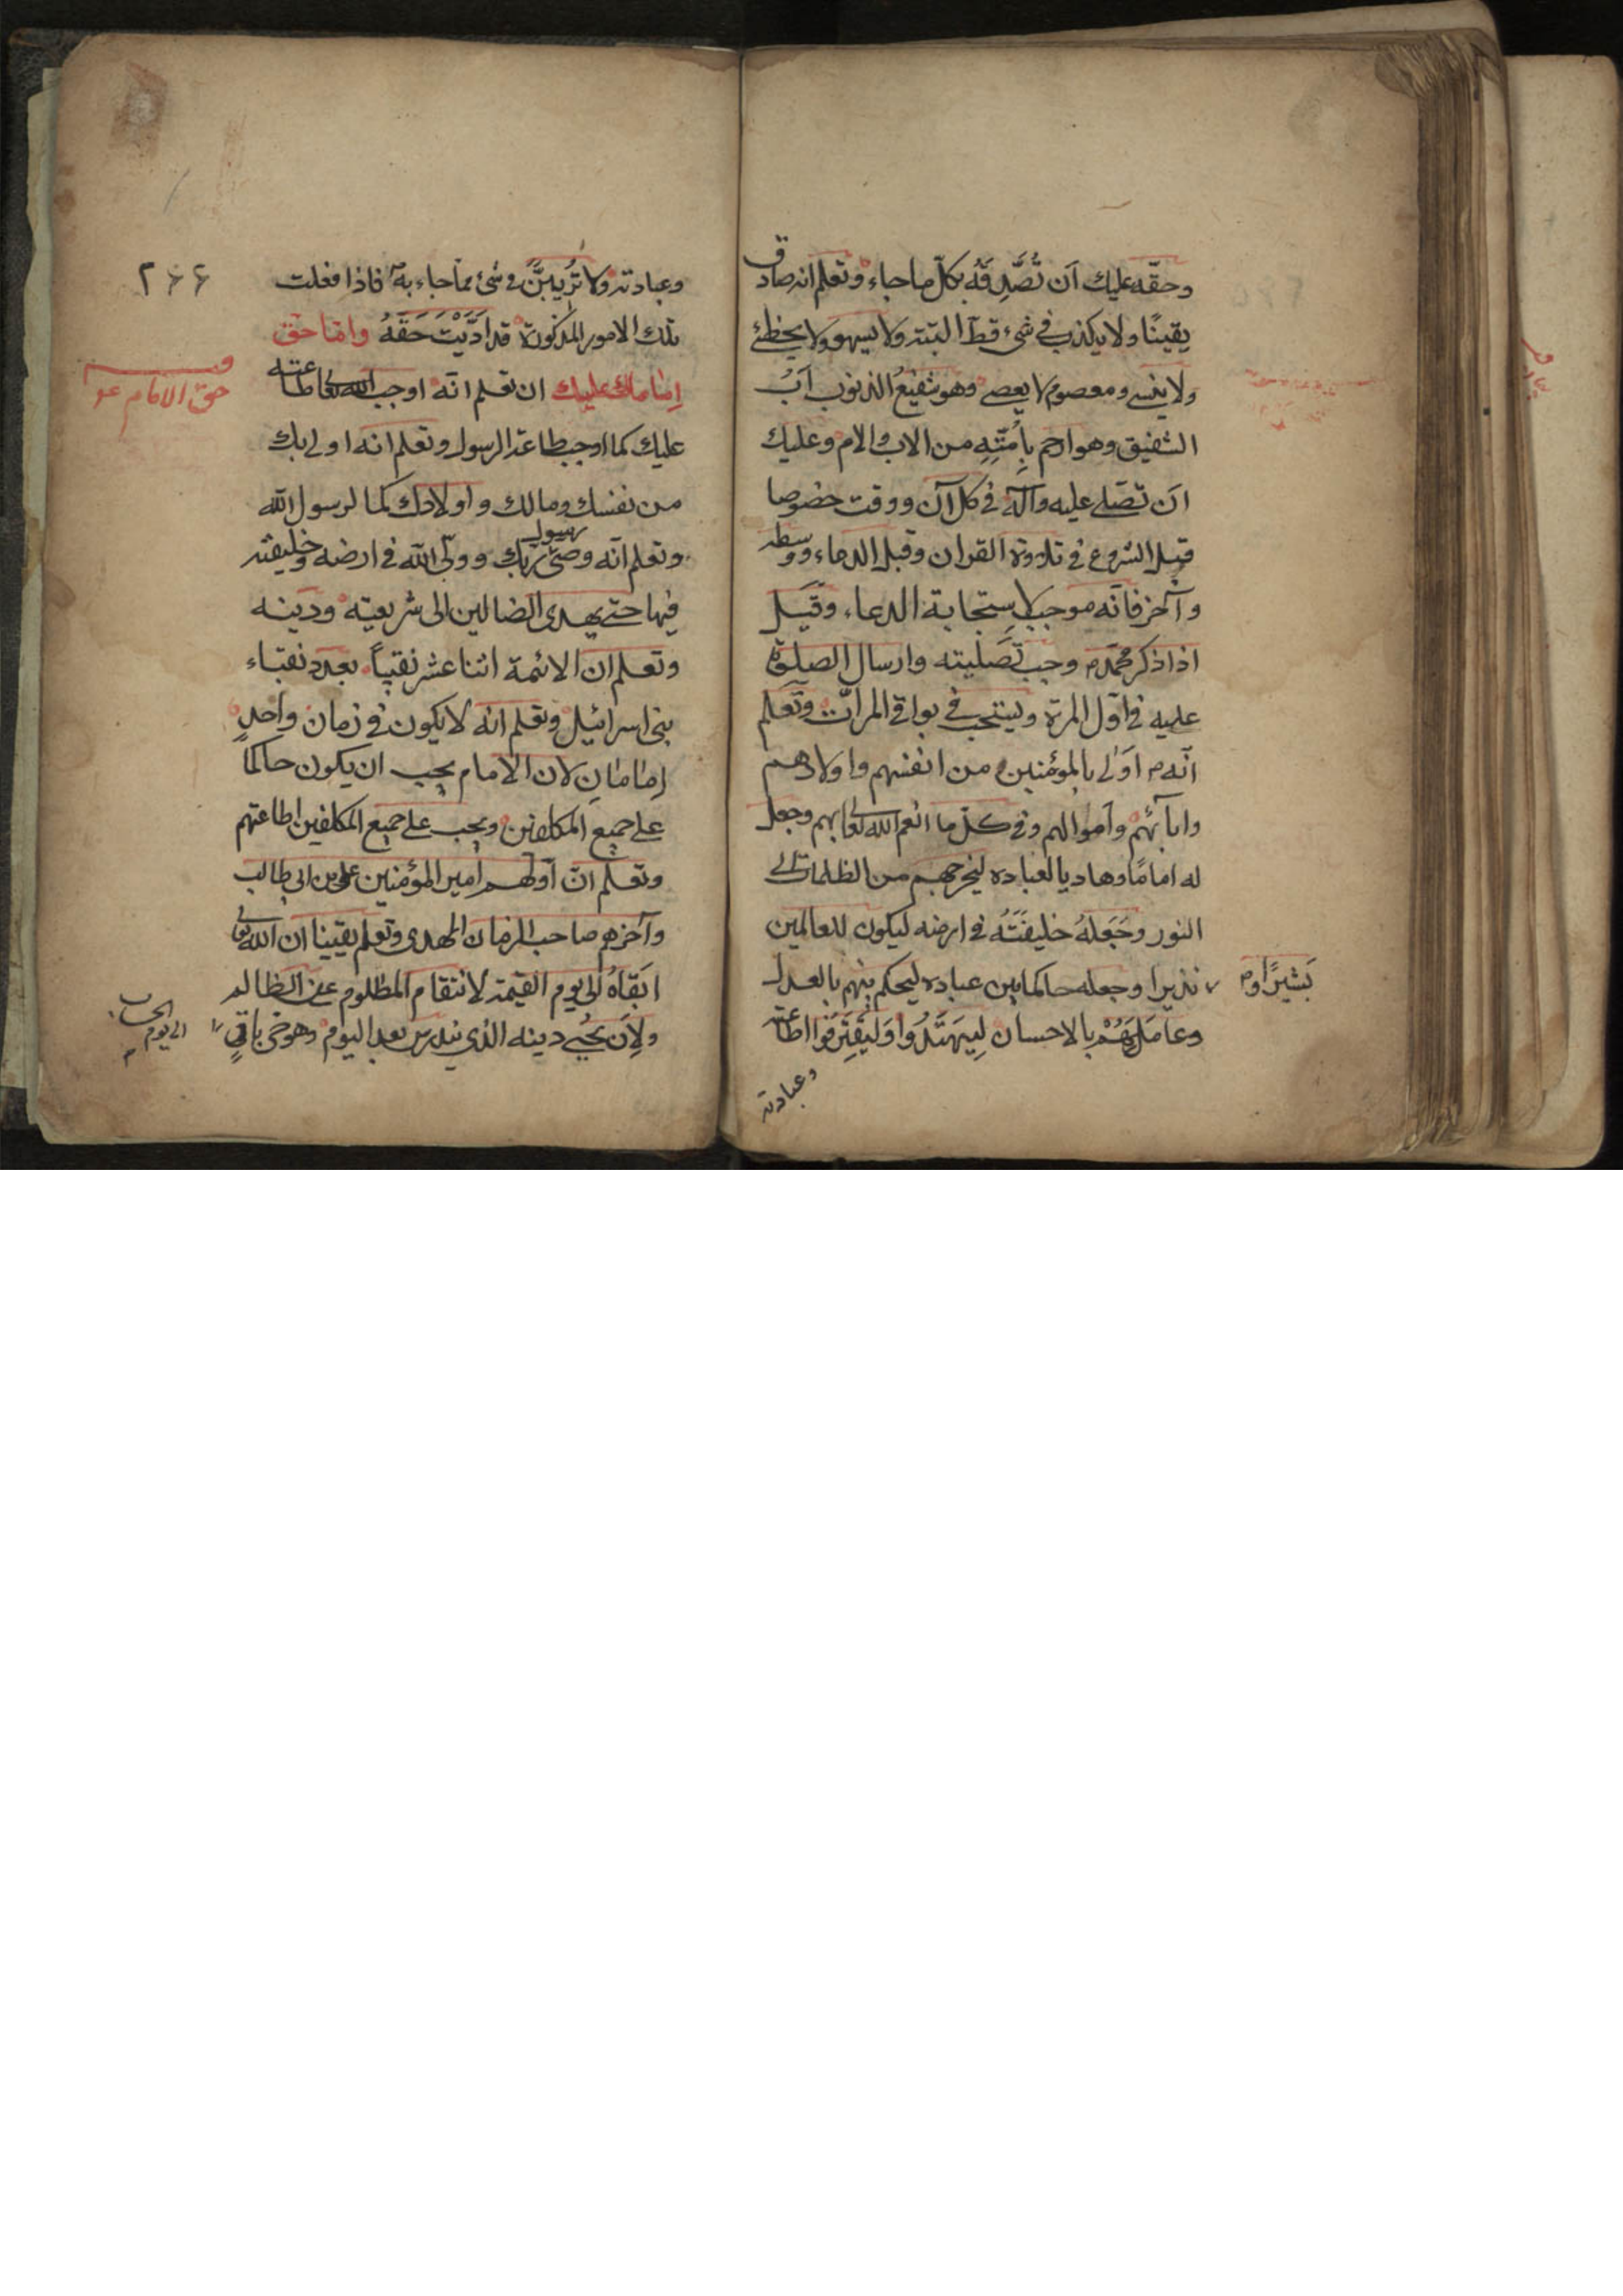 وحقّه عليك اَن تُصَّدِقَهُ بكلّ ما جاء، وتعلم انه صادق
يقينًا ولا يكذب في شئ قطّ البتته ولا يسهو ولا يخطئ
ولا ينسى ومعصوم لا يعصى وهو شفيعُ الذنوب اَبُ
الشفيق وهو ارحم بِاُمّتِهِ من الاب والام وعليك
ان تصّلى عليه وآله فى كل آن ووقت خصوصا
قبل الشروع فى تلاوة القران وقبل الدعاء ووسطه
وآخر فانّه موجب لاِستجابة الدعاء، وقيل
اذا ذكر محمّد م وجب تَصَليته وارسال الصلوة
عليه فى اوّل المرة ويستحب فى بواقى المرّات وتعلم
انّه م اولى بالمؤمنين من انفسهم واولادهم
وابآئهم واموالهم وفى كلّ ما انعم الله تعالى بهم وجعل
له امامًا وهاديا لعباده ليخرجهم من الظلمات الى
النور وجَعَلهُ خليفَتَهُ فى ارضه ليكون للعالمين
بَشيرًا و م
نذيرا وجعله حاكما بين عباده ليحكم بينهم بالعدل
وعامَلَهُمْ بالاحسان لِيَهتَدُوا وَليَقتَرِفُوا اطاعته
وعبادته
٢٦٦
وعبادته ولا تُرِيبَنَّ فى شئ مما جاء به فاذا فعلت
تلك الامور المذكورة قد ادّيْتَ حَقَّهُ وامّا حق
حق الامام ع
اِمامك عليك ان تعلم انّه اوجب الله تعالى طاعته
عليك كما اوجب طاعة الرسول وتعلم انه اولى بك
من نفسك ومالك واولادك كما لرسول الله
وتعلم انّه وصىّ رسول ربّك وولىّ الله فى ارضه وخليفته
فيها حتى يهدى الضالين الى شريعته ودينه
وتعلم ان الائمة اثنا عشر نقيباً بعدد نقباء
بنى اسرائيل وتعلم انّه لا يكون فى زمان واحدٍ
اِمامانِ لان الامام يجب ان يكون حاكما
على جميع المكلفين ويجب على جميع المكلفين اطاعتهم
وتعلم انّ اولهم امير المؤمنين على بن ابى طالب
وآخرهم صاحب الزمان المهدى وتعلم يقينا ان الله تعالى
ابَقاهُ الى يوم القيمة لانتقام المظلوم عن الظالم
ولِاَن يحُيى دينه الذى يندرس بعد اليوم وهو حىّ باقٍ
الى يوم الحساب م